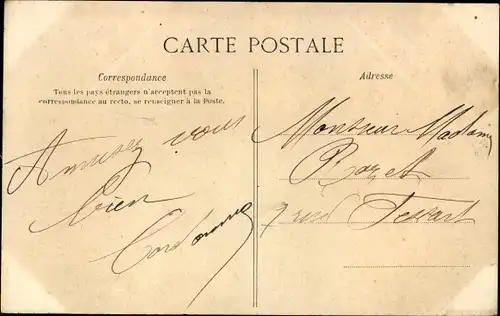 CARTE POSTALE
Correspondance
Tous les pays étrangers n'acceptent pas la
correspondance au recto, se renseigner à la Poste.
Amusez vous
bien
Adresse
Monsieur Madame
7 rue